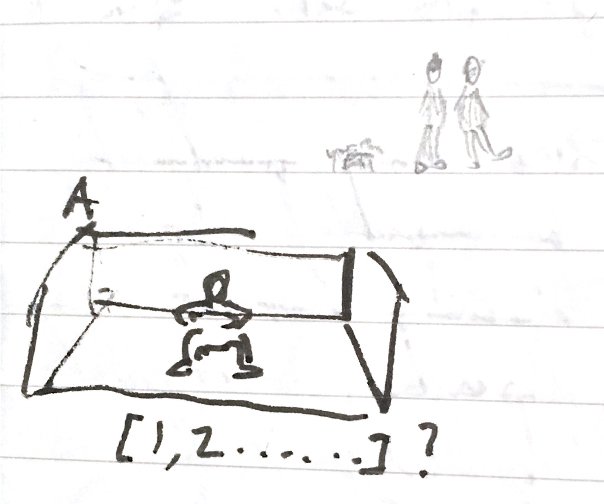 A
[1,2.......]?